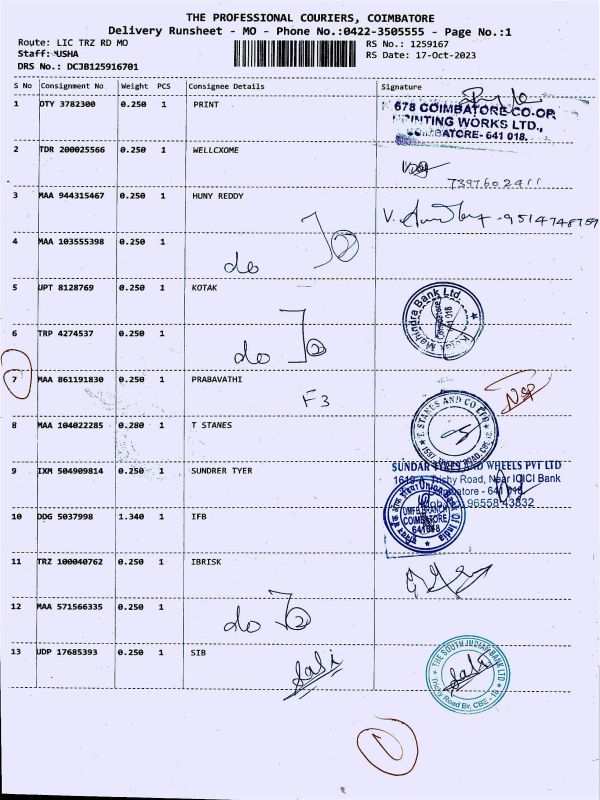 THE PROFESSIONAL COURIERS, COIMBATORE
Delivery Runsheet - MO - Phone No.:0422-3505555 - Page No.:1
Route: LIC TRZ RD MO RS No.: 1259167
Staff: USHA RS Date: 17-Oct-2023
DRS No.: DCJB125916701
S No Consignment No Weight PCS Consignee Details Signature
1 DTY 3782300 0.250 1 PRINT
678 COIMBATORE CO-OP.
PRINTING WORKS LTD.,
COIMBATORE- 641 018.
2 TDR 200025566 0.250 1 WELLCXOME
7397602411
3 MAA 944315467 0.250 1 HUNY REDDY
4 MAA 103555398 0.250 1
do
5 UPT 8128769 0.250 1 KOTAK
Kotak Mahindra Bank Ltd.
Coimbatore
641 018
6 TRP 4274537 0.250 1
do
7 MAA 861191830 0.250 1 PRABAVATHI
F3
8 MAA 104022285 0.280 1 T STANES
T. STANES AND CO LTD
9 IXM 504909814 0.250 1 SUNDRER TYER
SUNDAR TYRES AND WHEELS PVT LTD
Trichy Road, Near ICICI Bank
96558 43832
10 DDG 5037998 1.340 1 IFB
Union Bank Of India
COIMBATORE
11 TRZ 100040762 0.250 1 IBRISK
12 MAA 571566335 0.250 1
do
13 UDP 17685393 0.250 1 SIB
THE SOUTH INDIAN BANK LTD
Trichy Road Br. CBE - 18